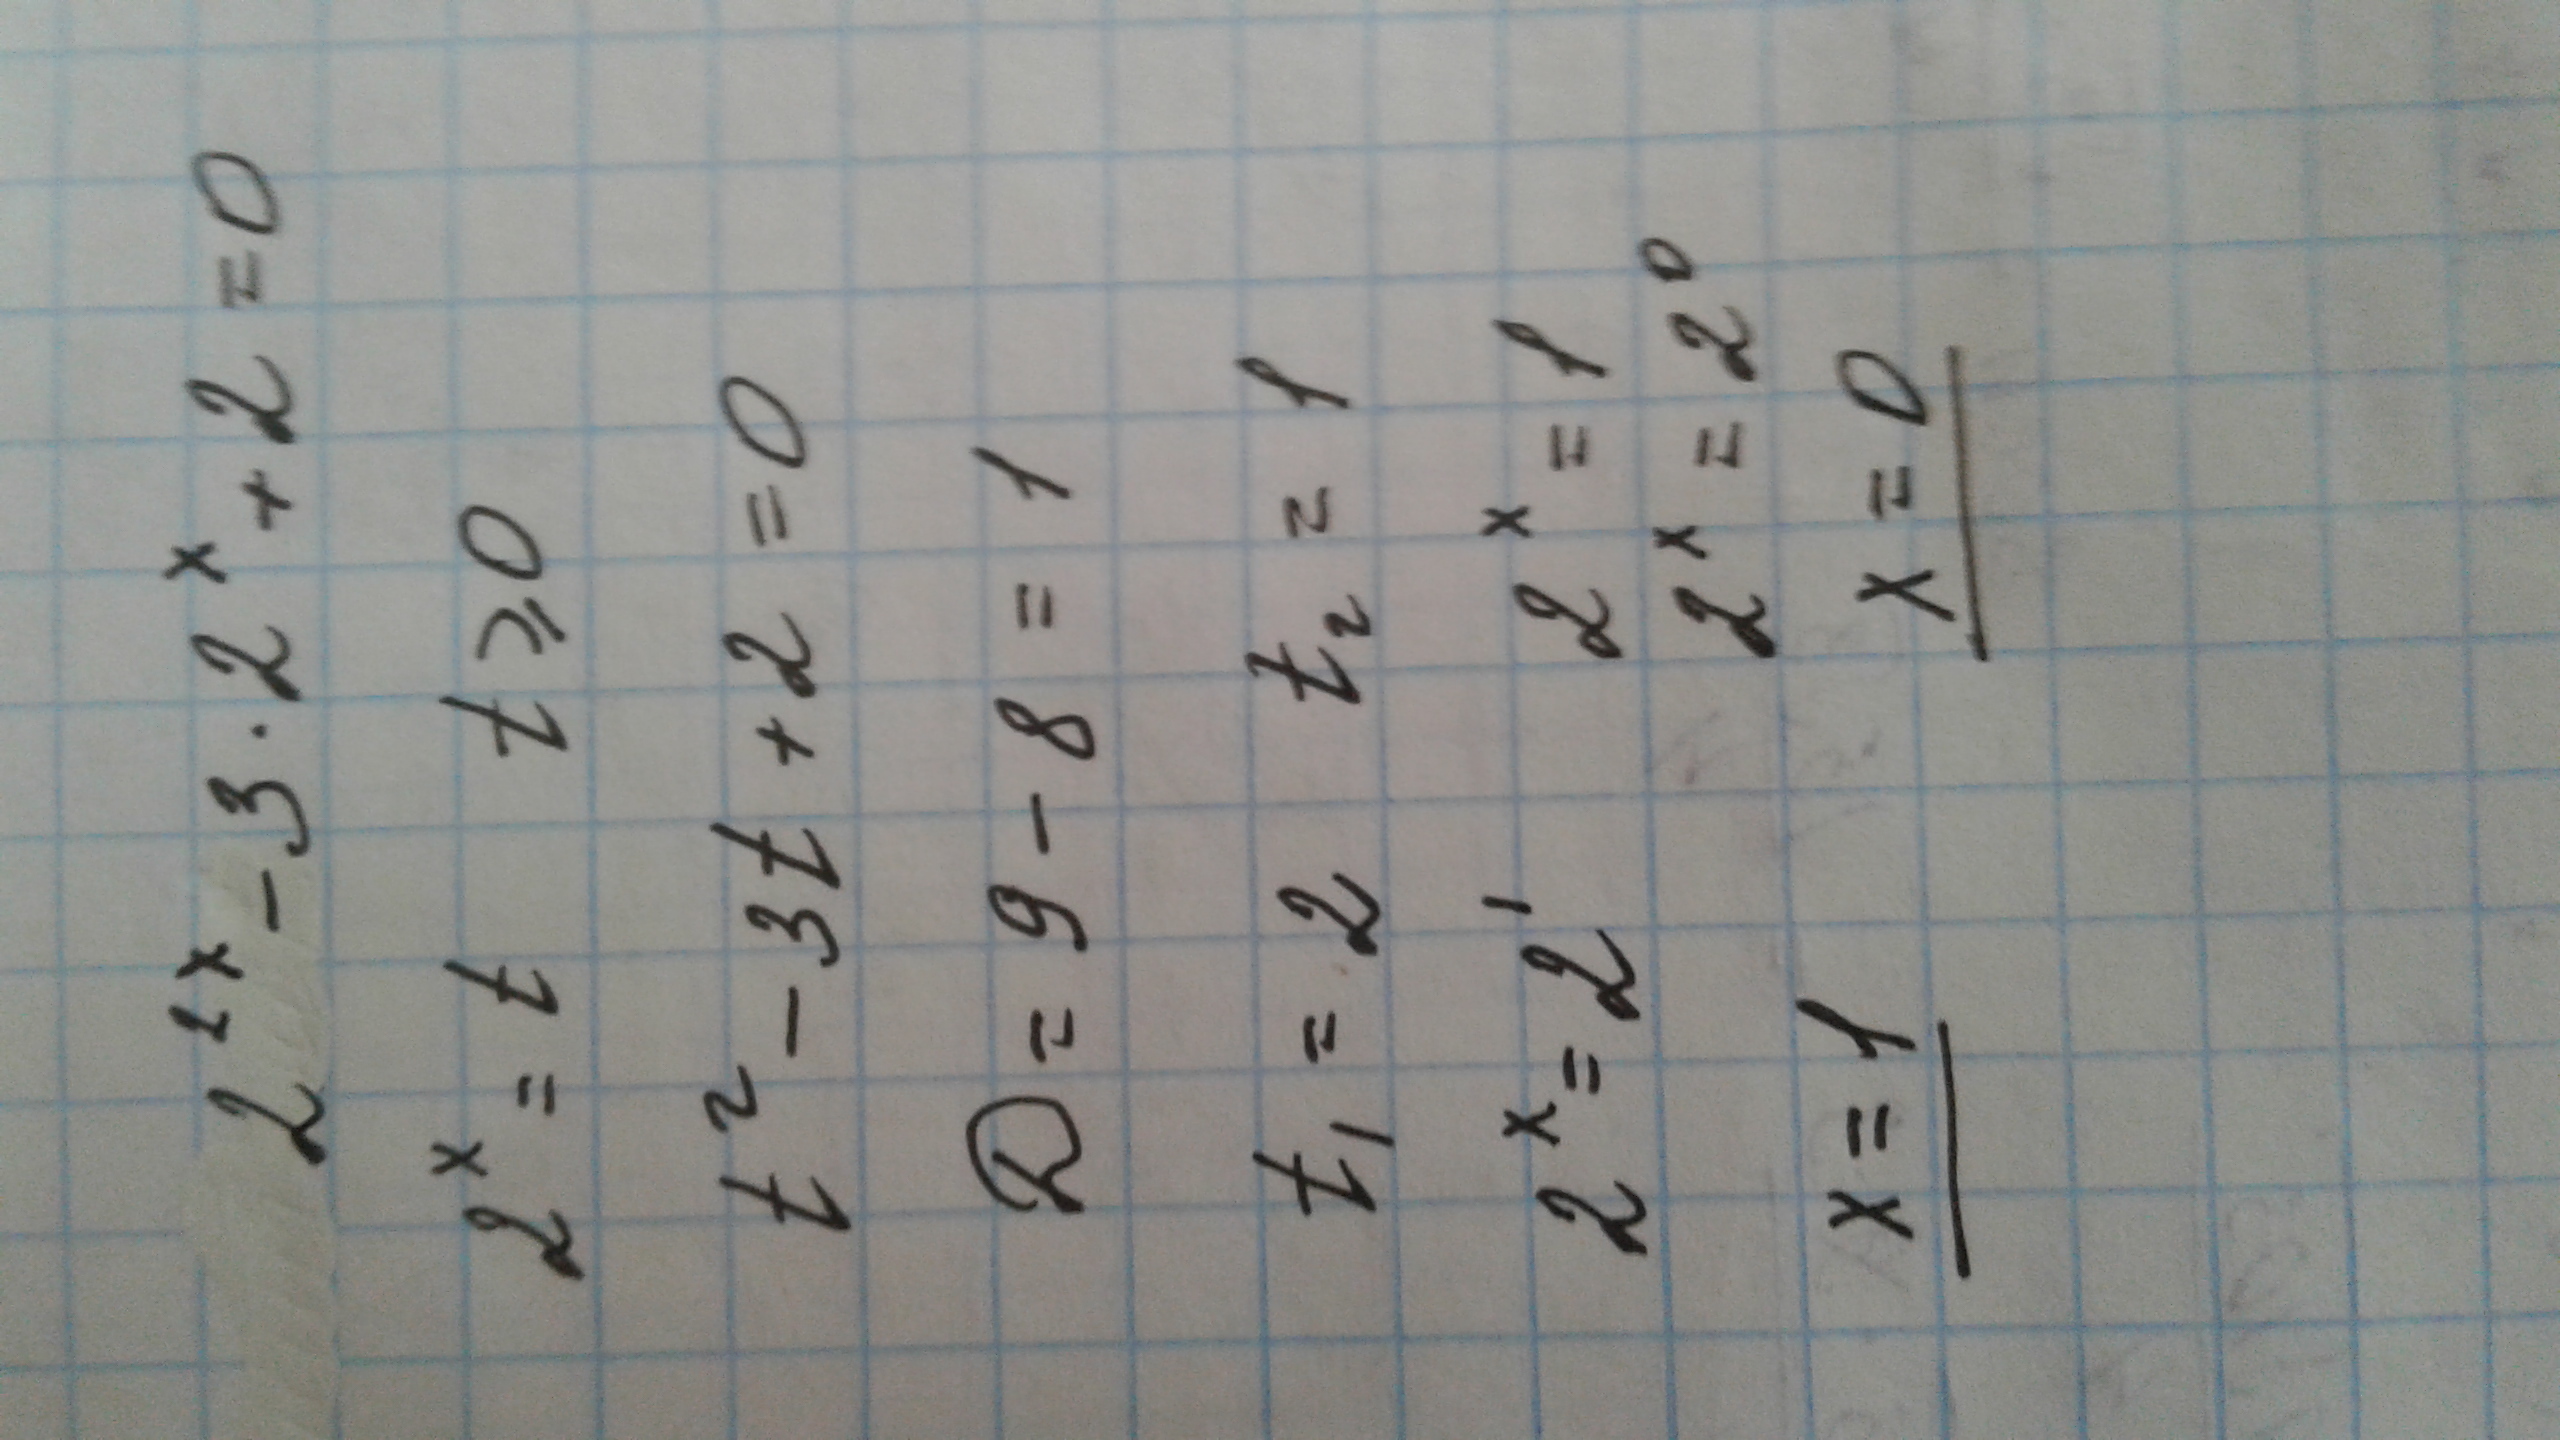 2²ˣ - 3 · 2ˣ + 2 = 0
2ˣ = t t ⩾ 0
t² - 3t + 2 = 0
D = 9 - 8 = 1
t₁ = 2 t₂ = 1
2ˣ = 2¹ 2ˣ = 1
2ˣ = 2⁰
x = 1 x = 0